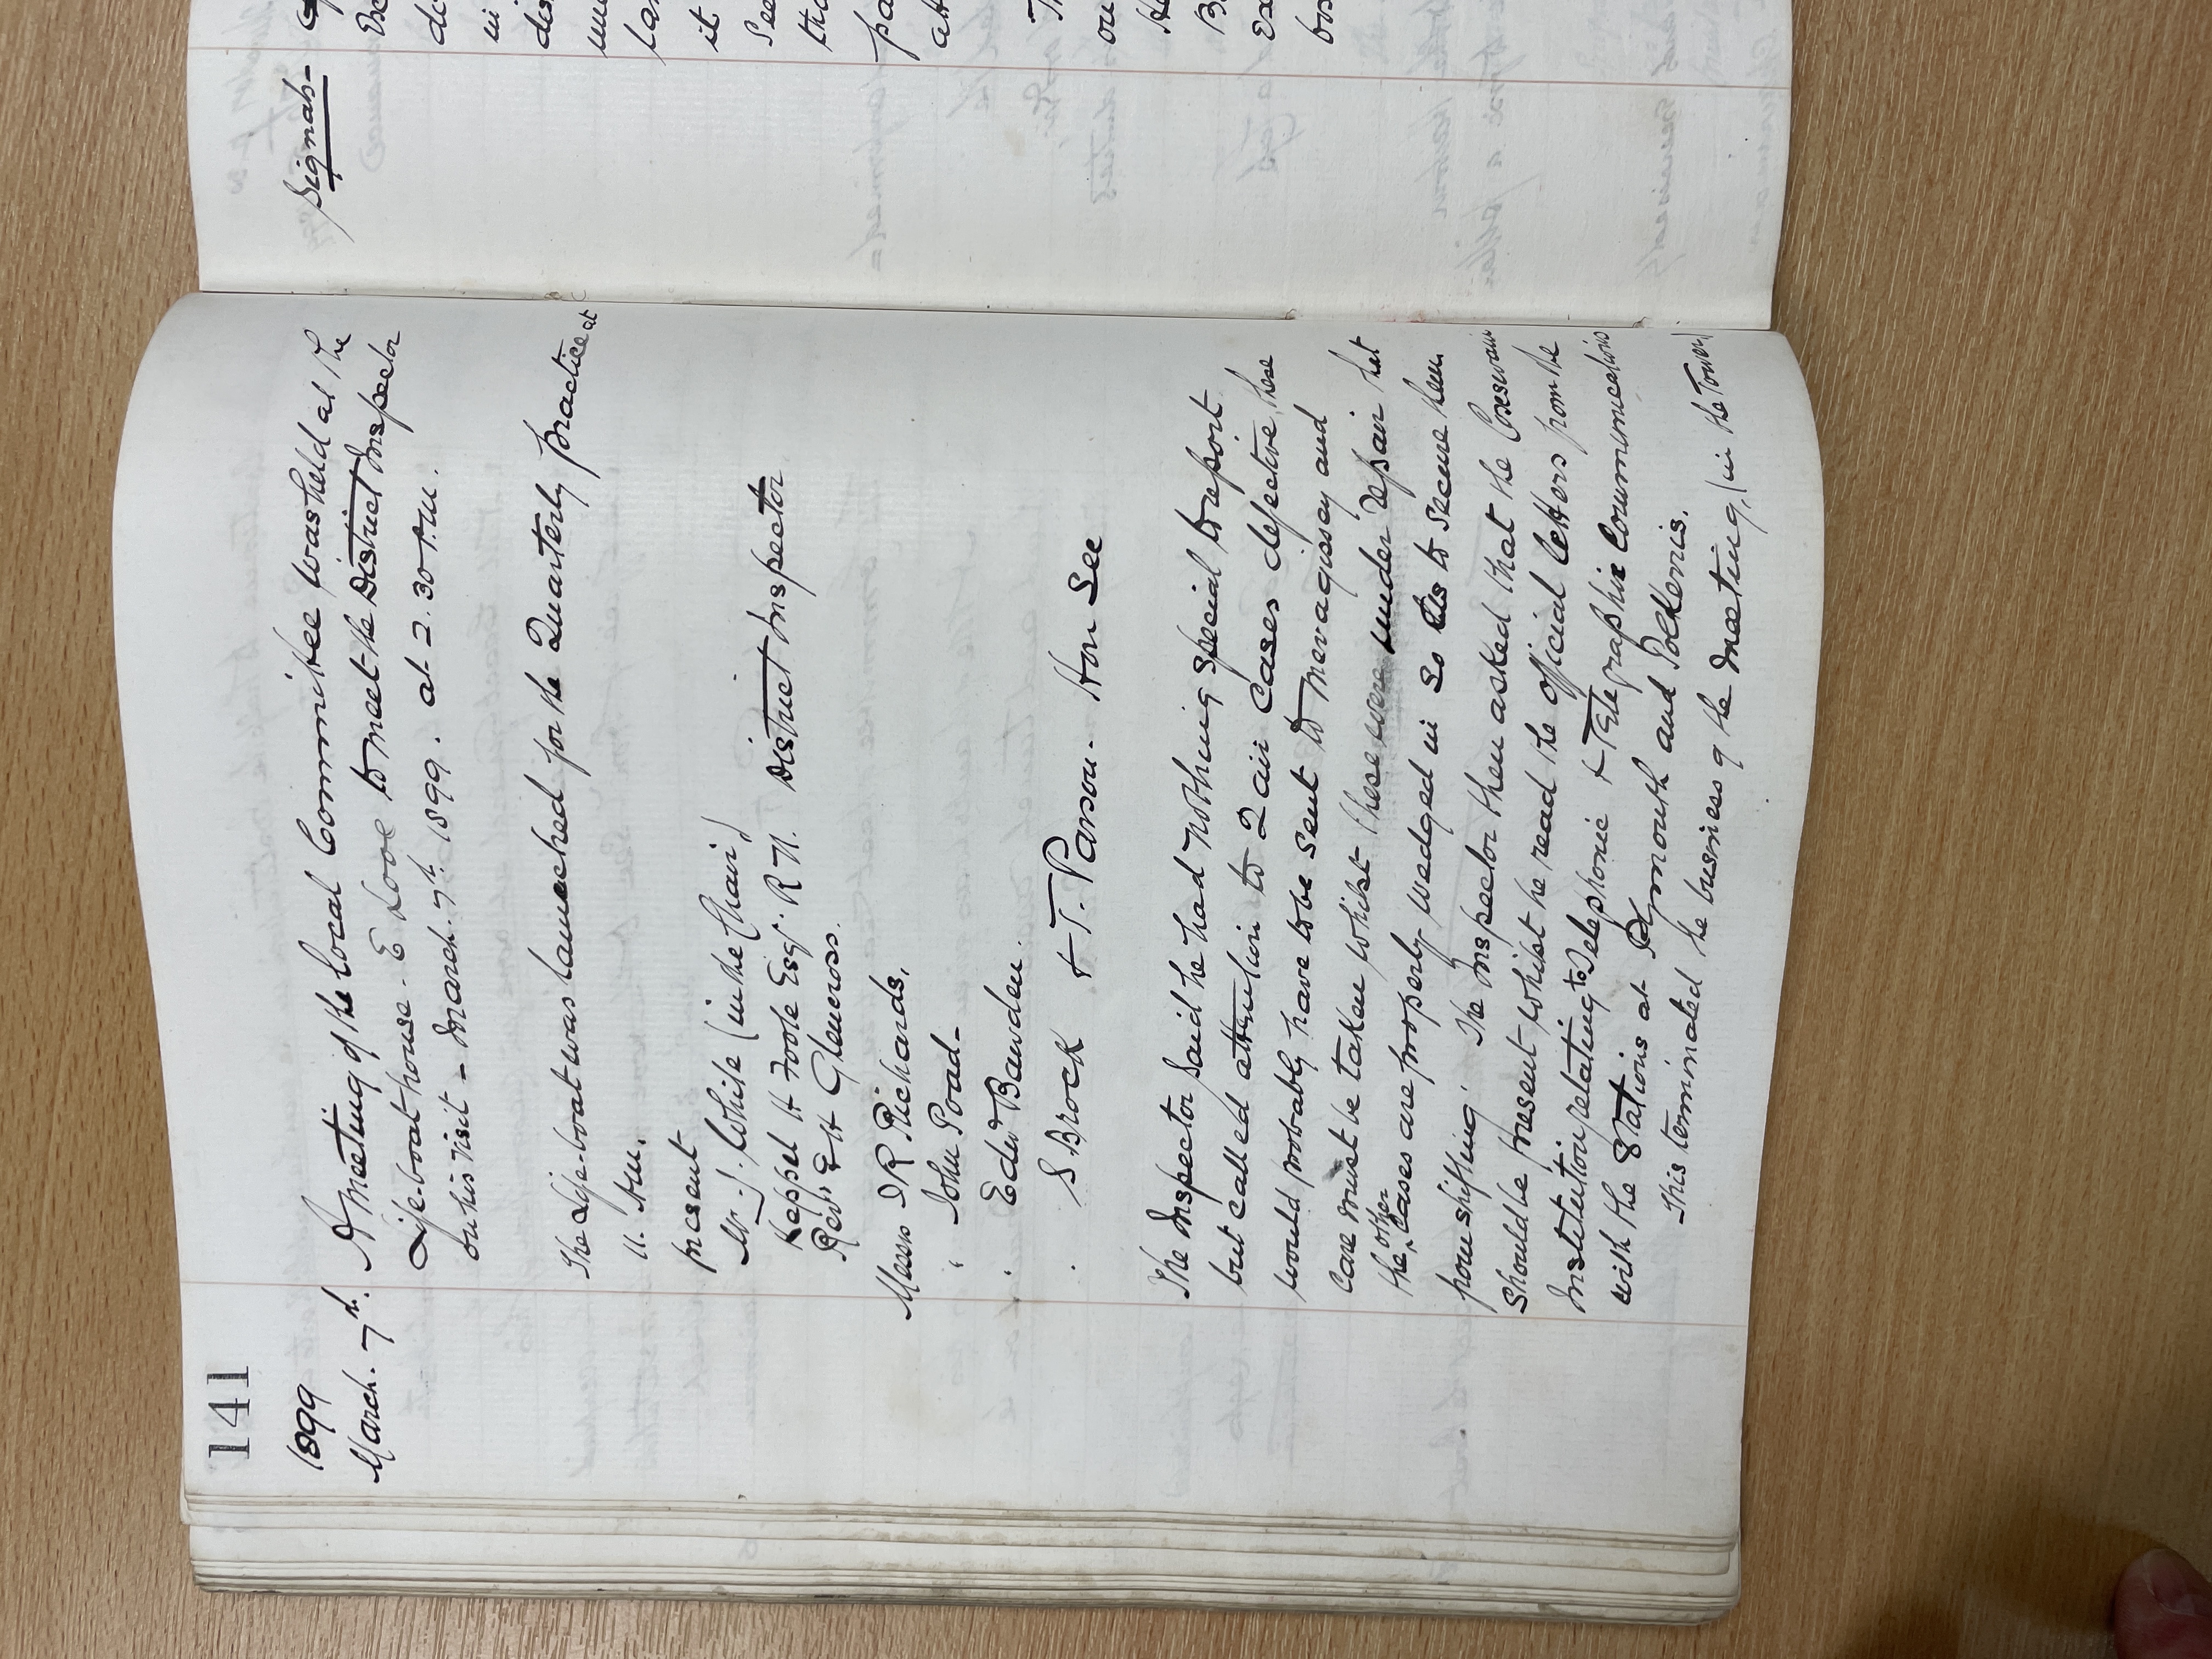 141
1899
March. 7th.
A meeting of the Local Committee was held at the
Life-boat house. E Looe to meet the District Inspector
on his visit - March. 7th. 1899. at 2.30 P.M.
The Life-boat was launched for the Quarterly practice at
11. Am.
Present
Mr J. White (in the Chair)
Keppel H Foote Esqr. R N. District Inspector
Revd. E H Glencross.
Messrs I R Richards,
" John Poad-
" Edwd Bawden.
" S Brock & T. Parson. Hon Sec
The Inspector said he had nothing special to report
but called attention to 2 air Cases defective, these
would probably have to be sent to Mevagissey and
Care must be taken whilst these were under repair that
the other Cases are properly wedged in so as to secure them
from shifting. The Inspector then asked that the Coxswain
Should be present whilst he read the official letters from the
Institution relating to Telephonic & Telegraphic Communications
with the Stations at Plymouth and Polkerris.
This terminated the business of the Meeting, (in the Town)
Signah-